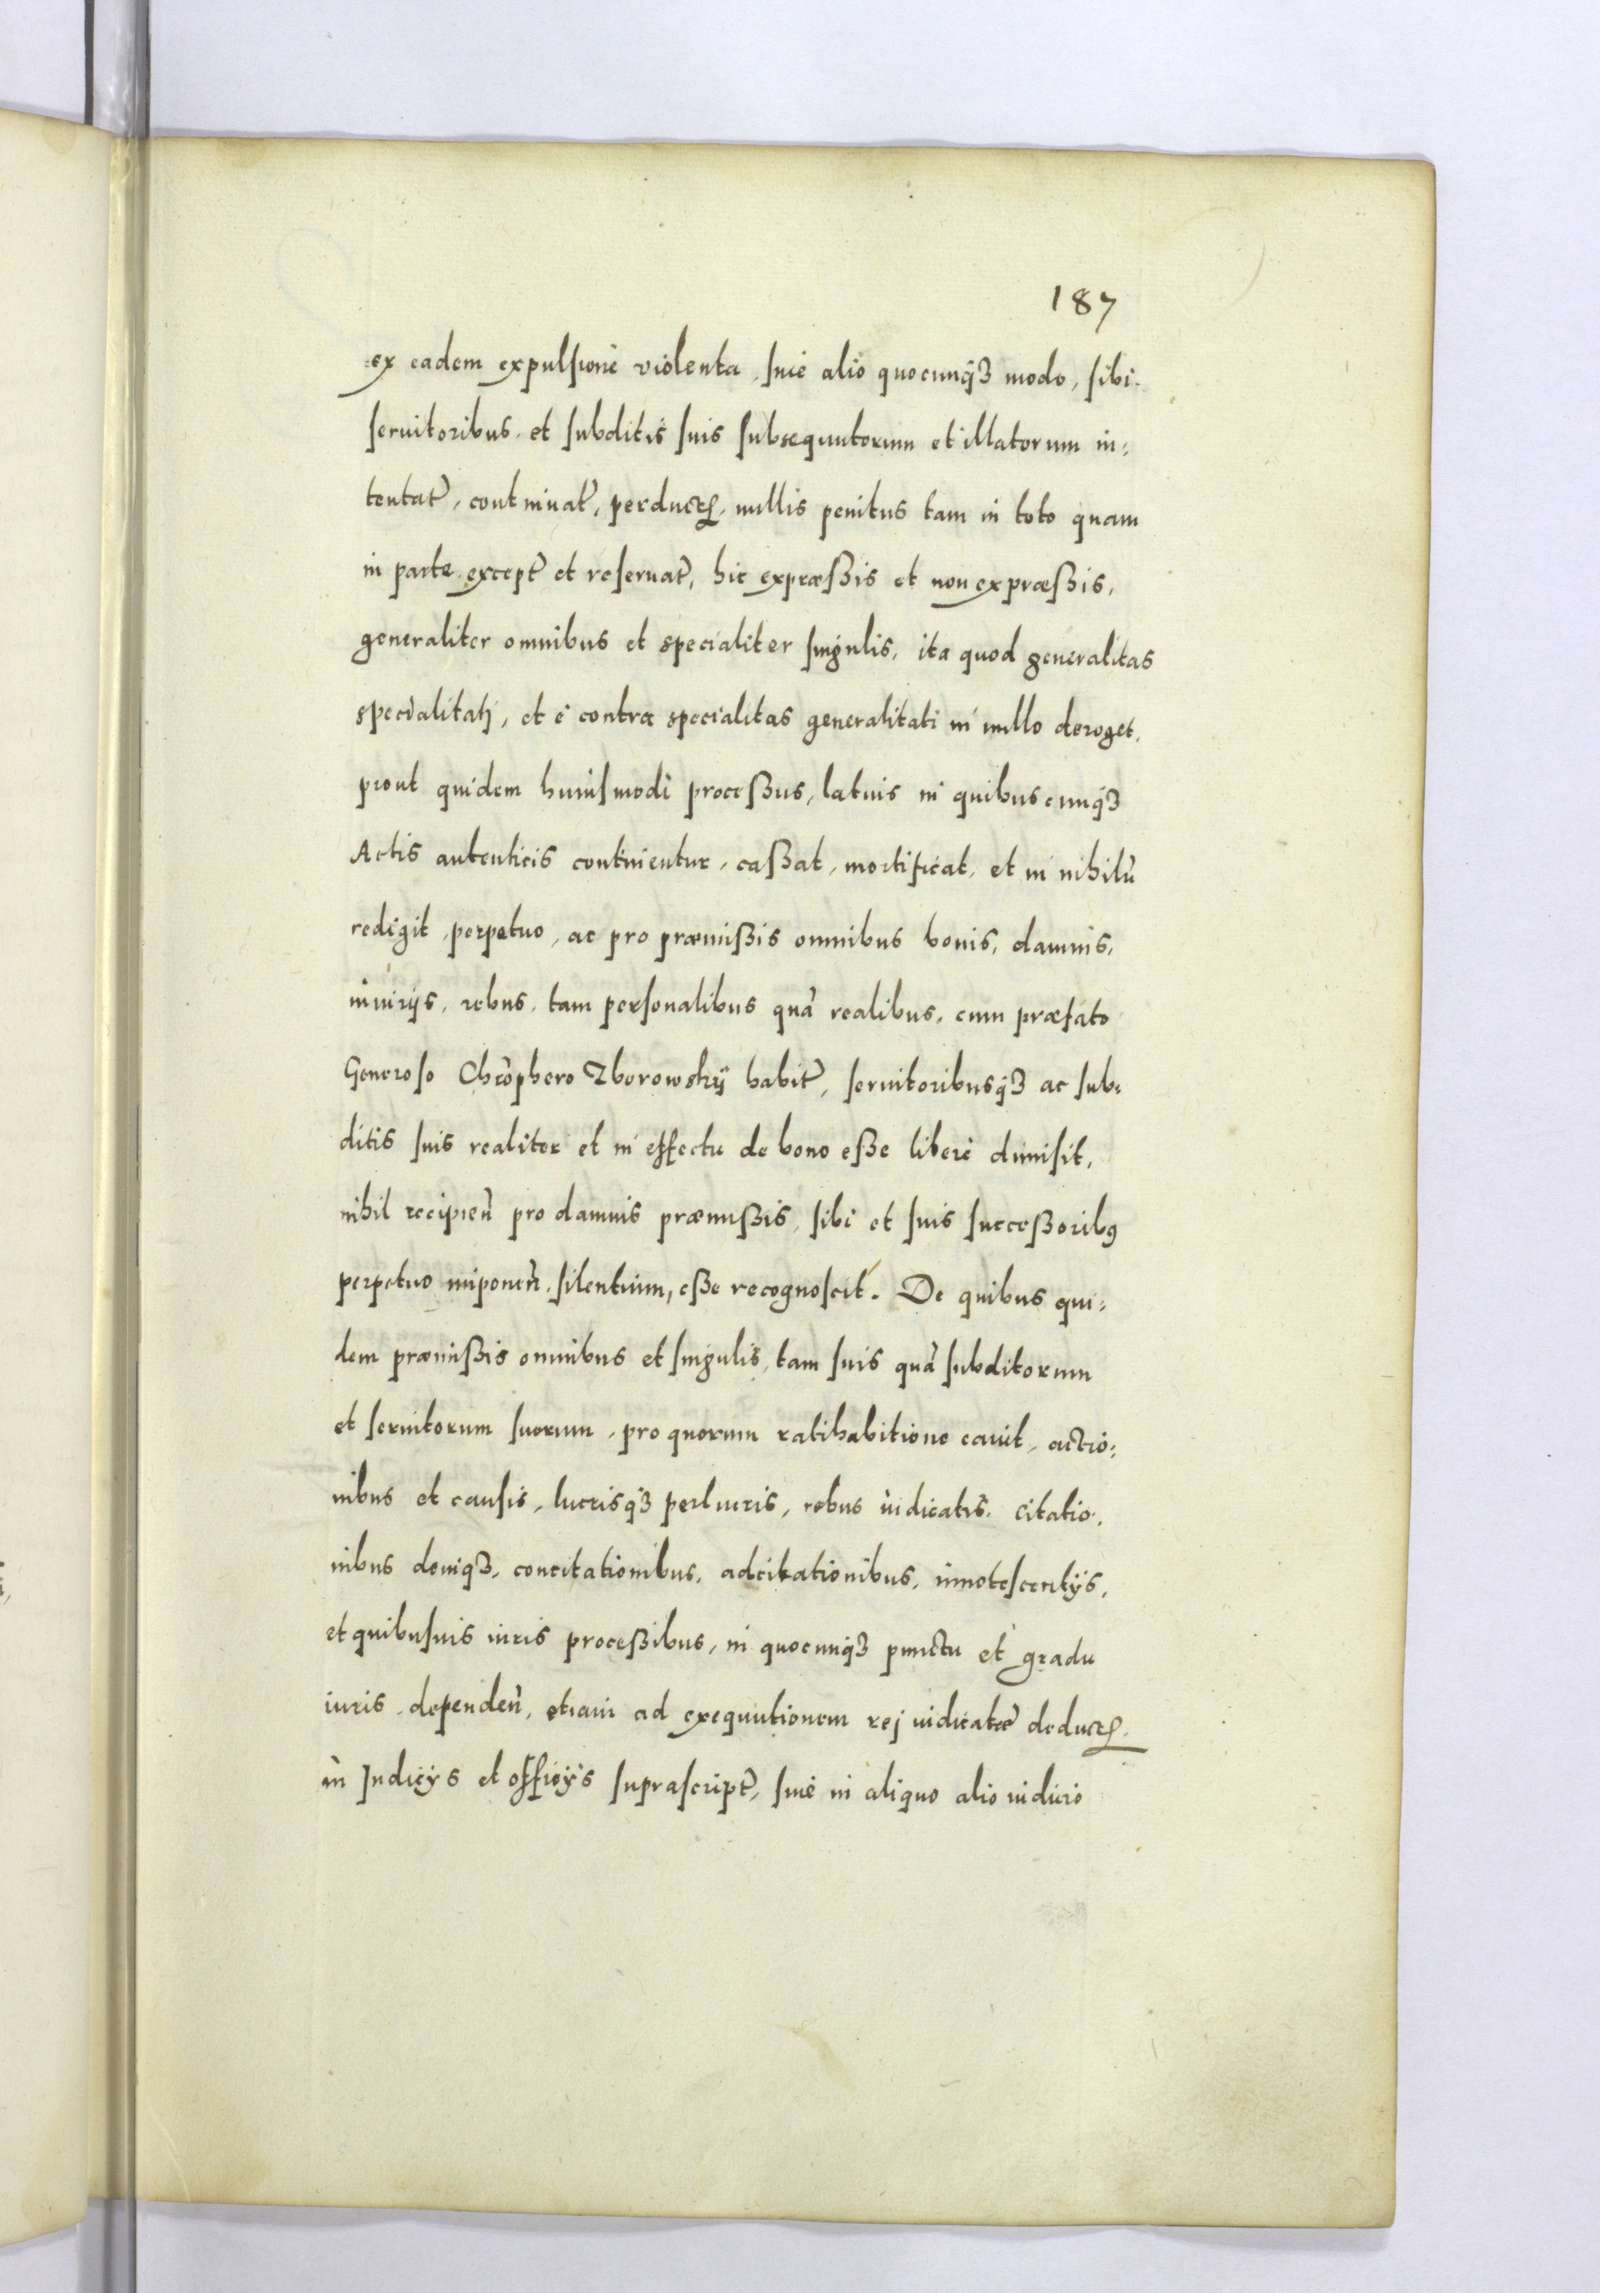 187
ex eadem expulsione violenta, siue alio quocunq3 modo, sibi
seruitoribus, et subditis suis subsequutorum et illatorum in:
tentat̃, continuat̃, perduct̃, nullis penitus tam in toto quam
in parte except̃ et reseruat̃, hic expræßis et non expræßis,
generaliter omnibus et specialiter singulis, ita quod generalitas
specialitatj, et e contra specialitas generalitati in nullo deroget,
prout quidem huiusmodi proceßus, latius in quibuscunq3
Actis autenticis continientur, caßat, mortificat, et in nihilū
redigit, perpetuo, ac pro præmißis omnibus bonis, damnis,
iniurijs, rebus, tam personalibus quā realibus, cum præfato
Generoso Chrõphero Zborowskÿ habit̃, seruitoribusq3 ac sub:
ditis suis realiter et in effectu de bono eße libere dimisit,
nihil recipień pro damnis præmißis, sibi et suis succeßorib9
perpetuo imponeñ silentium, eße recognoscit. De quibus qui:
dem præmißis omnibus et singulis, tam suis quā subditorum
et seruitorum suorum, pro quorum ratihabitione cauit, actio:
nibus et causis, lucrisq3 perlucris, rebus iudicatis, citatio,
nibus deniq3, concitationibus, adcitationibus, innotescentijs,
et quibusuis iuris proceßibus, in quocunq3 punctu et gradu
iuris dependeñ, etiam ad exequutionem rej iudicatæ deduct̃
in Judicijs et officijs suprascript̃, siue in aliquo alio iudicio